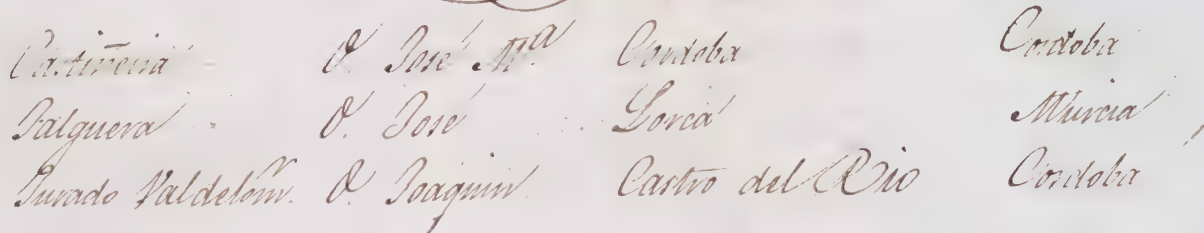 Castiñeira D. José M.ª Cordoba Cordoba
Falguera D. José Lorca Murcia
Jurado Valdelom.r D. Joaquin Castro del Rio Cordoba